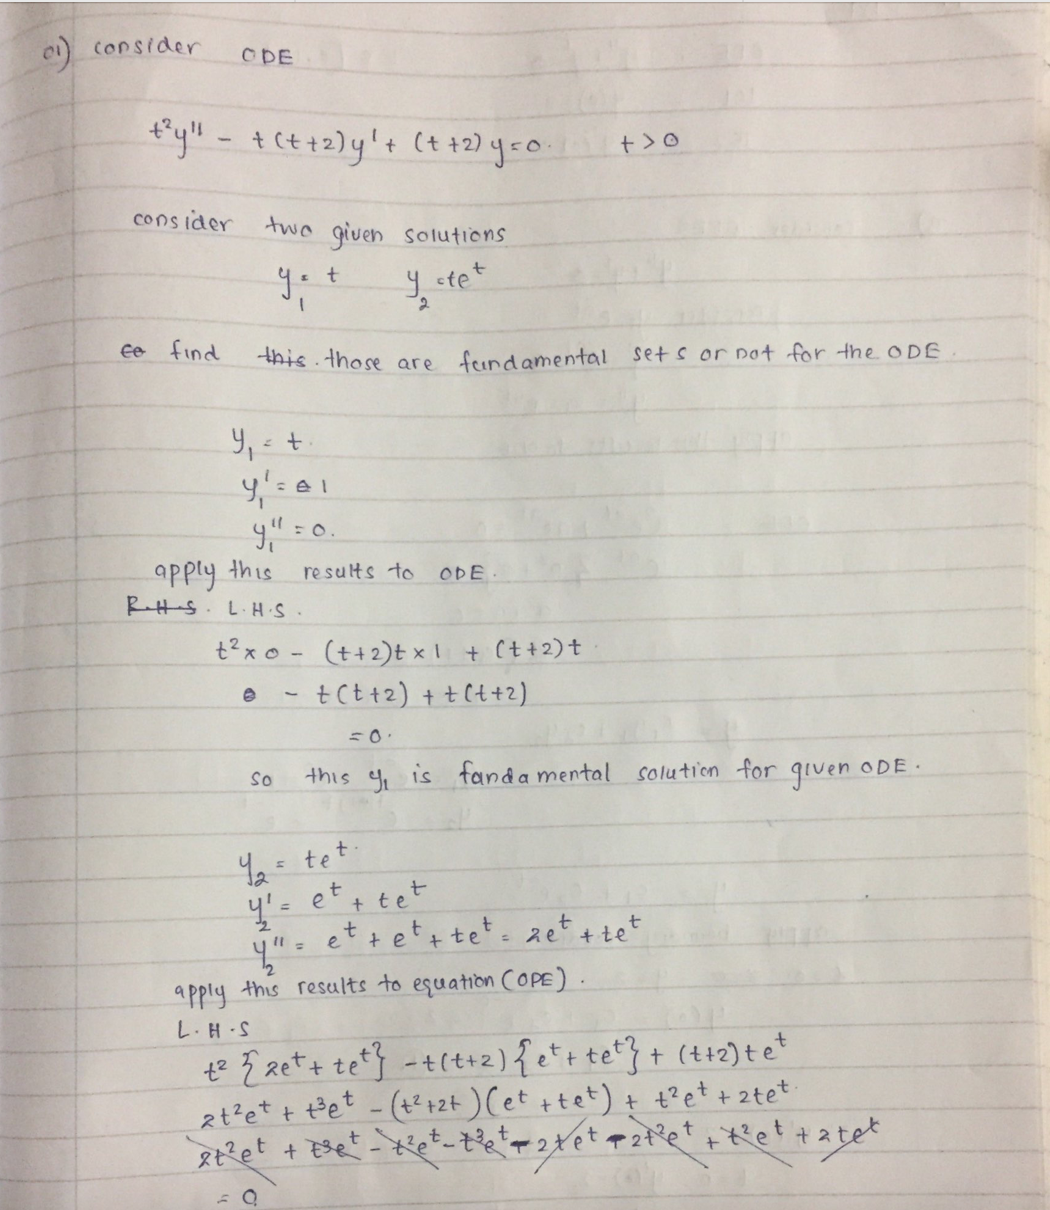 01) consider ODE
t²y'' - t(t+2)y' + (t+2)y=0. t>0
consider two given solutions
y₁ = t y₂ = te^t
find this. those are fundamental sets or not for the ODE.
y₁ = t.
y₁' = 1
y₁'' = 0.
apply this results to ODE.
R.H.S. L.H.S.
t² x 0 - (t+2)t x 1 + (t+2)t
- t(t+2) + t(t+2)
=0.
so this y₁ is fandamental solution for given ODE.
y₂ = te^t.
y₂' = e^t + te^t
y₂'' = e^t + e^t + te^t = 2e^t + te^t
apply this results to equation (OPE).
L.H.S
t² {2e^t + te^t} - t(t+2) {e^t + te^t} + (t+2)te^t
2t²e^t + t³e^t - (t²+2t)(e^t + te^t) + t²e^t + 2te^t.
2t²e^t + t³e^t - t²e^t - t³e^t - 2te^t - 2t²e^t + t²e^t + 2te^t
= 0